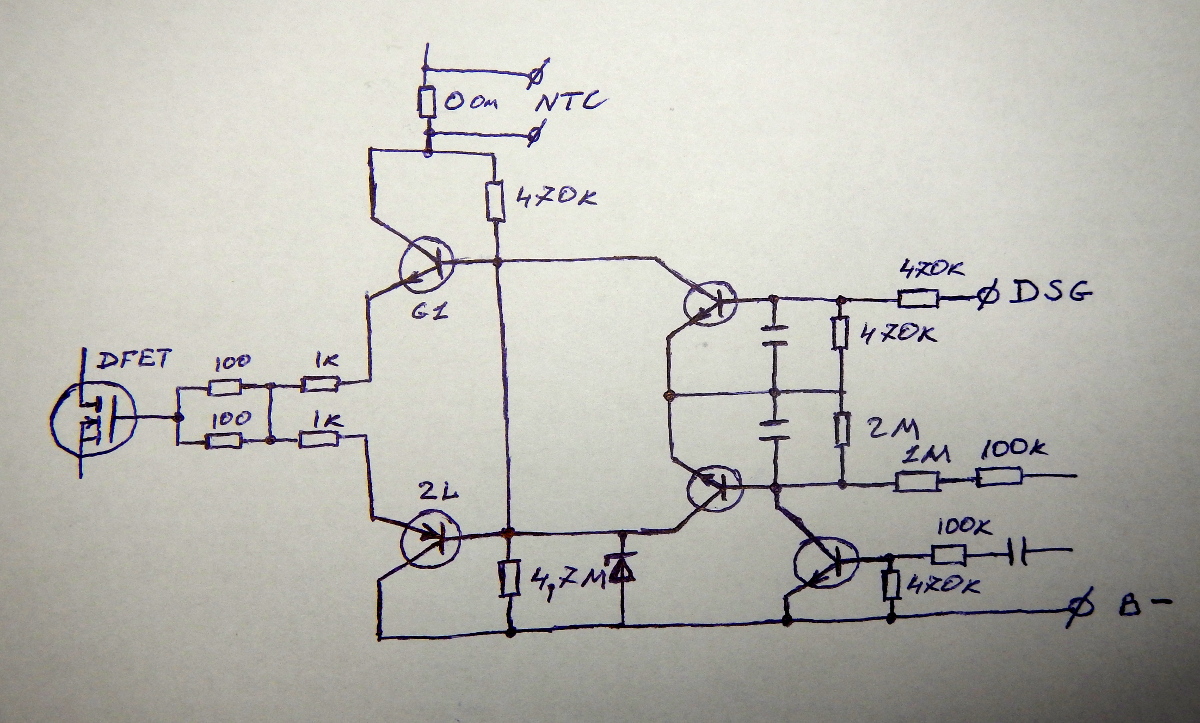 0 Om
NTC
470K
G1
470K
DSG
470K
DFET
100
1K
100
1K
2L
2M
1M
100K
100K
4,7M
470K
B-